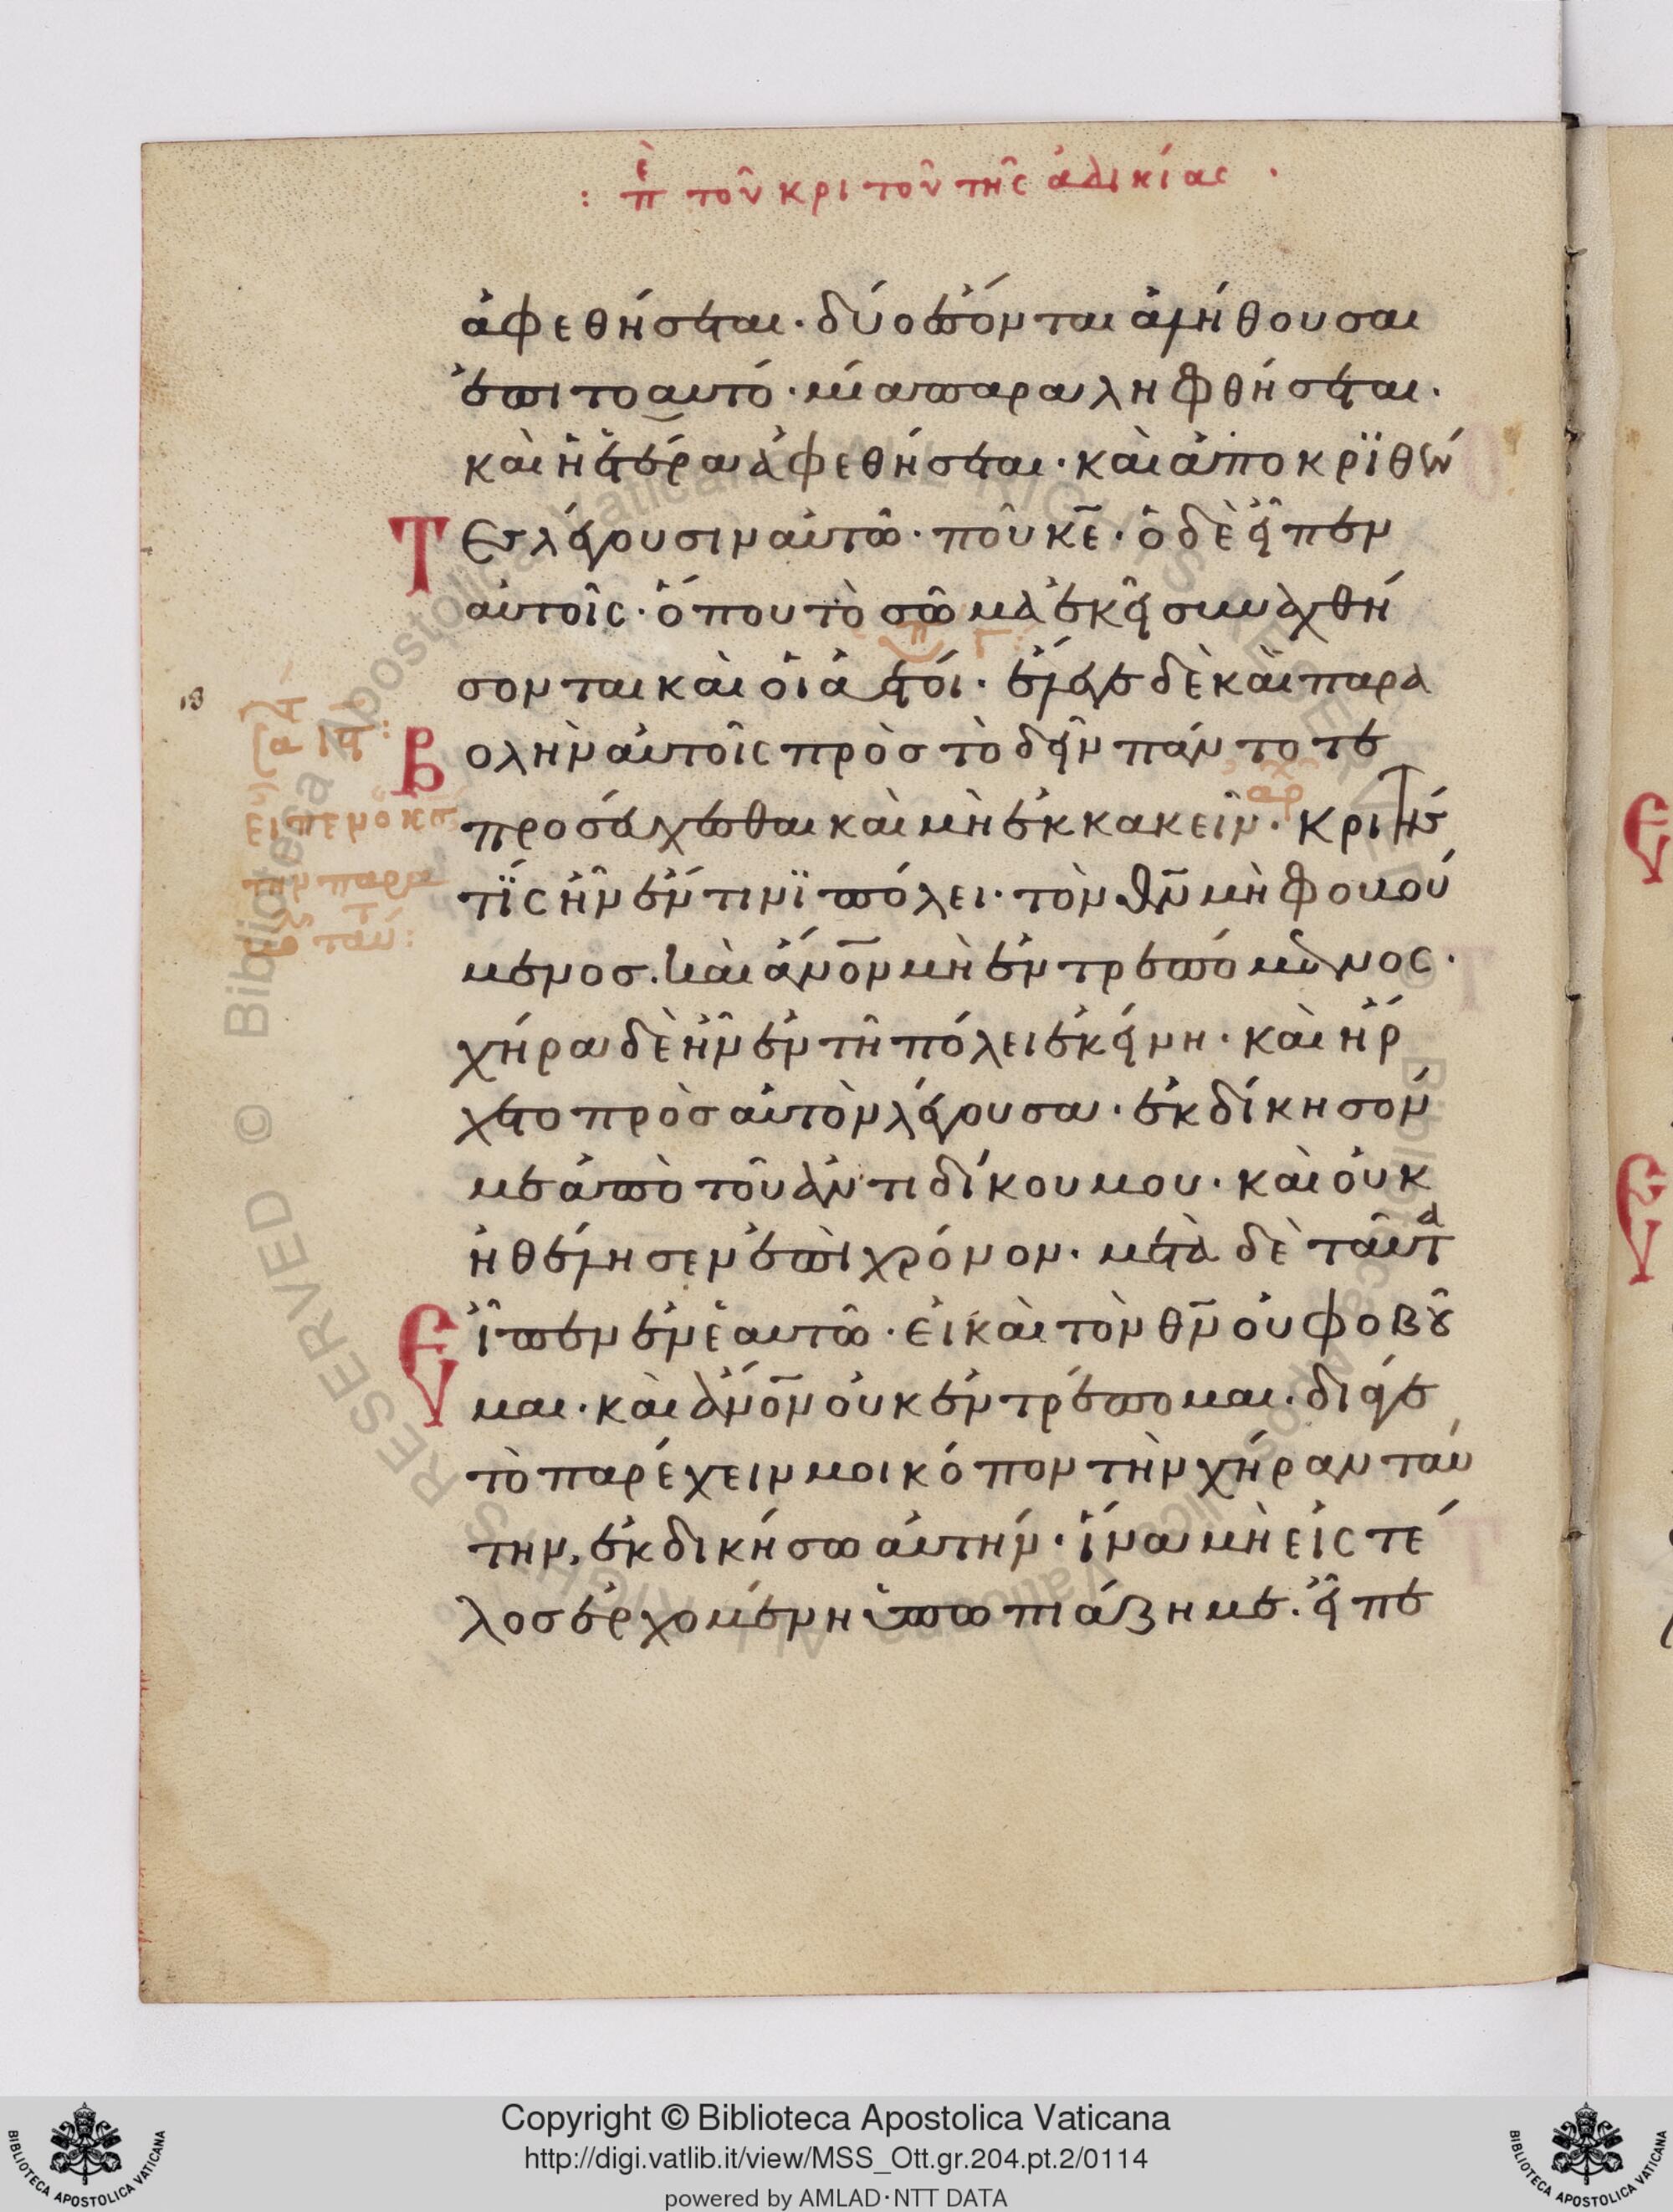 : πὲ τοῦ κριτοῦ τῆς ἀδικίας ·
ἀφεθήσεται · δύο ἔσονται ἀλήθουσαι
ἐπι το αυτό · μία παραληφθήσεται ·
καὶ ἡ ἑτέρα ἀφεθήσεται · καὶ ἀποκρϊθέν
Τες λέγουσιν αὐτῶ · ποῦ κε̅ · ὁ δὲ εἶπεν
αὐτοῖς · ὅπου τὸ σῶμα ἐκεῖ συναχθή
σονται καὶ οἱ ἀετοί · ἔλεγε δὲ καὶ παρα
Βολὴν αὐτοῖς πρὸσ τὸ δεῖν πάντοτε
προσεύχεσθαι καὶ μὴ ἐκκακεῖν · κριτής
τϊς ἦν ἔν τινϊ πόλει · τὸν θν̅ μὴ φοβού
μενοσ . καὶ ἄνο̅ν μὴ ἐντρεπόμενος ·
χήρα δὲ ἦν ἐν τῆ πόλει ἐκείνη · καὶ ἤρ
χετο πρὸσ αὐτὸν λέγουσα · ἐκδίκησόν
με ἀπὸ τοῦ ἀντιδίκου μου · καὶ οὐκ
ἠθέλησεν ἐπὶ χρόνον · μετὰ δὲ ταῦτα
Εἶπεν ἐν ἑαυτῶ · εἰ καὶ τὸν θν̅ οὐ φοβοῦ
μαι · καὶ ἄνο̅ν οὐκ ἐντρέπομαι · διά γε
τὸ παρέχειν μοι κόπον τὴν χήραν ταύ
την, ἐκδικήσω αὐτήν · ἵνα μὴ εἰς τέ
λοσ ἐρχομένη ὑπωπιάζη με · εἶπε
18
Copyright © Biblioteca Apostolica Vaticana
http://digi.vatlib.it/view/MSS_Ott.gr.204.pt.2/0114
powered by AMLAD·NTT DATA
BIBLIOTECA APOSTOLICA VATICANA
BIBLIOTECA APOSTOLICA VATICANA